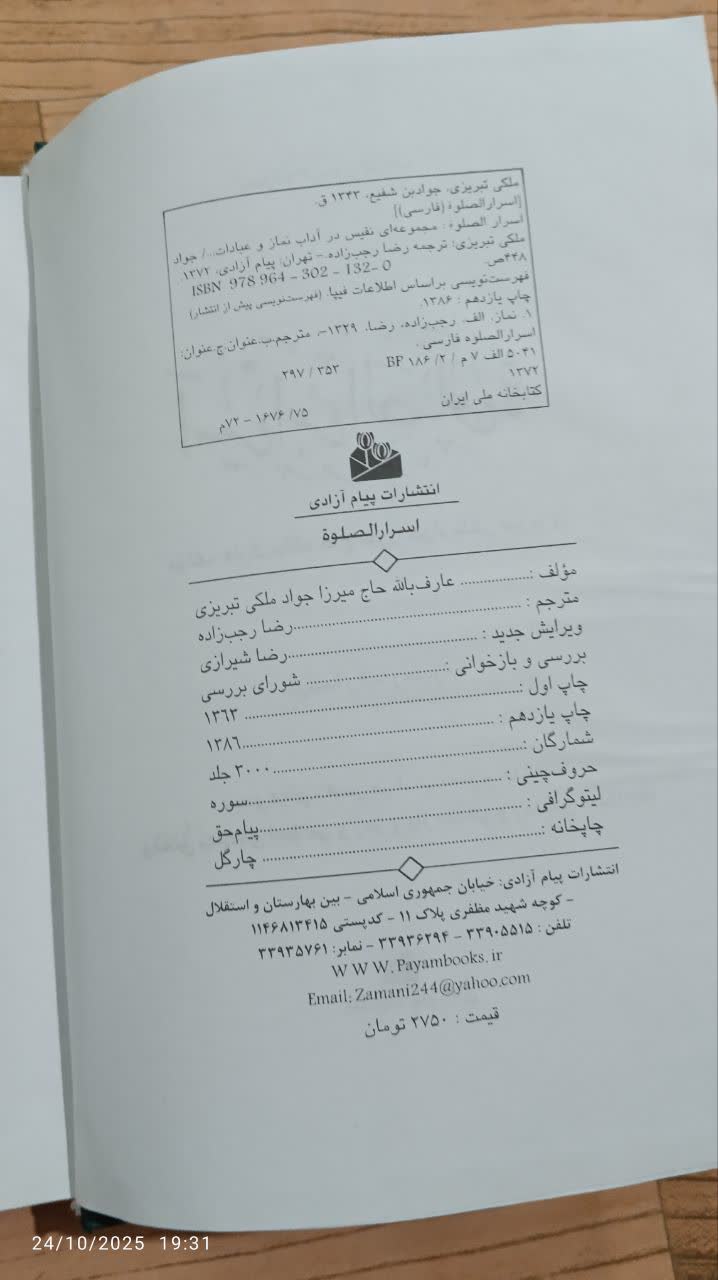 ملکی تبریزی، جوادبن شفیع، ۱۳۴۳ ق.
[اسرارالصلوة (فارسی)]
اسرار الصلوة : مجموعه‌ای نفیس در آداب نماز و عبادات.../ جواد
ملکی تبریزی؛ ترجمه رضا رجب‌زاده.- تهران: پیام آزادی، ۱۳۷۲.
۴۴۸ص.
ISBN 978 964 - 302 - 132- 0
فهرست‌نویسی براساس اطلاعات فیپا. (فهرست‌نویسی پیش از انتشار)
چاپ یازدهم : ۱۳۸۶.
۱. نماز. الف. رجب‌زاده، رضا، ۱۳۲۹-، مترجم.ب.عنوان.ج.عنوان:
اسرارالصلوه فارسی.
۵۰۴۱ الف ۷ م / ۲/ ۱۸۶ BP ۲۹۷ / ۳۵۳
۱۳۷۲
کتابخانه ملی ایران ۷۵/ ۱۶۷۶ - ۷۲م
انتشارات پیام آزادی
اسرارالصلوة
مؤلف :................ عارف‌بالله حاج میرزا جواد ملکی تبریزی
مترجم : ......................................................رضا رجب‌زاده
ویرایش جدید : ............................................رضا شیرازی
بررسی و بازخوانی :................................ شورای بررسی
چاپ اول :................................................................ ۱۳٦۳
چاپ یازدهم : ...........................................................۱۳۸٦
شمارگان :..........................................................۳۰۰۰ جلد
حروف‌چینی : ............................................................سوره
لیتوگرافی : .............................................................پیام‌حق
چاپخانه :................................................................ چارگل
انتشارات پیام آزادی: خیابان جمهوری اسلامی - بین بهارستان و استقلال
- کوچه شهید مظفری پلاک ۱۱ - کدپستی ۱۱۴۶۸۱۳۴۱۵
تلفن : ۳۳۹۰۵۵۱۵ - ۳۳۹۳۶۲۹۴ - نمابر: ۳۳۹۳۵۷۶۱
W W W. Payambooks. ir
Email: Zamani244@yahoo.com
قیمت : ۲۷۵۰ تومان
24/10/2025 19:31